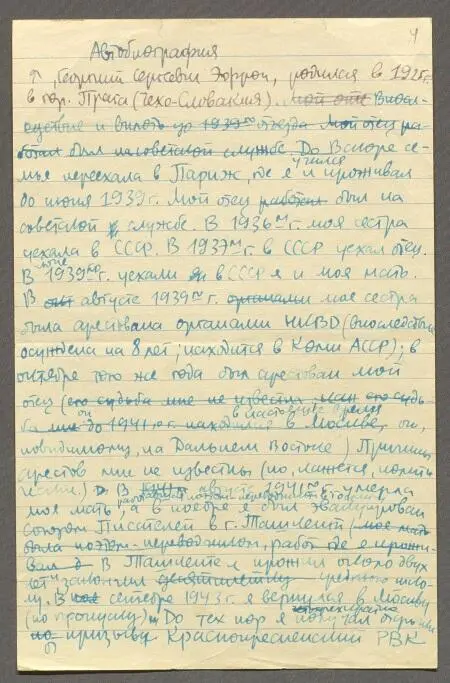 4
Автобиография
Я, Георгий Сергеевич Эфрон, родился в 1925 г.
в гор. Прага (Чехо-Словакия). Мой отец Впос-
ледствие и вплоть до 1939го отъезда Мой отец ра-
ботал был на советской службе До Вскоре се-
мья переехала в Париж, где я учился и проживал
до июня 1939 г. Мой отец работал был на
советской службе. В 1936м г. моя сестра
уехала в СССР. В 1937м г. в СССР уехал отец.
В июне 1939го г. уехали в СССР я и моя мать.
В окт августе 1939го г. органами моя сестра
была арестована органами НКВД (впоследствии
осуждена на 8 лет; находится в Коми АССР); в
октябре того же года был арестован мой
отец (его судьба мне не известна его судь-
ба до 1941го г. находился в Москве, он, в настоящее время
повидимому, на Дальнем Востоке) Причины
арестов мне не известны (но, кажется, полити-
ческие.) В августе 1941го г. умерла
моя мать, а в ноябре я был эвакуирован
союзом Писателей в г. Ташкент (моя мать
была поэтом-переводчиком, работ где я прожи-
вал В Ташкенте я прожил около двух
лет и закончил десятилетку среднюю шко-
лу. В сентябре 1943 г. я вернулся в Москву
(по пропуску) До тех пор я получал отсрочки
по призыву Краснопресненский РВК